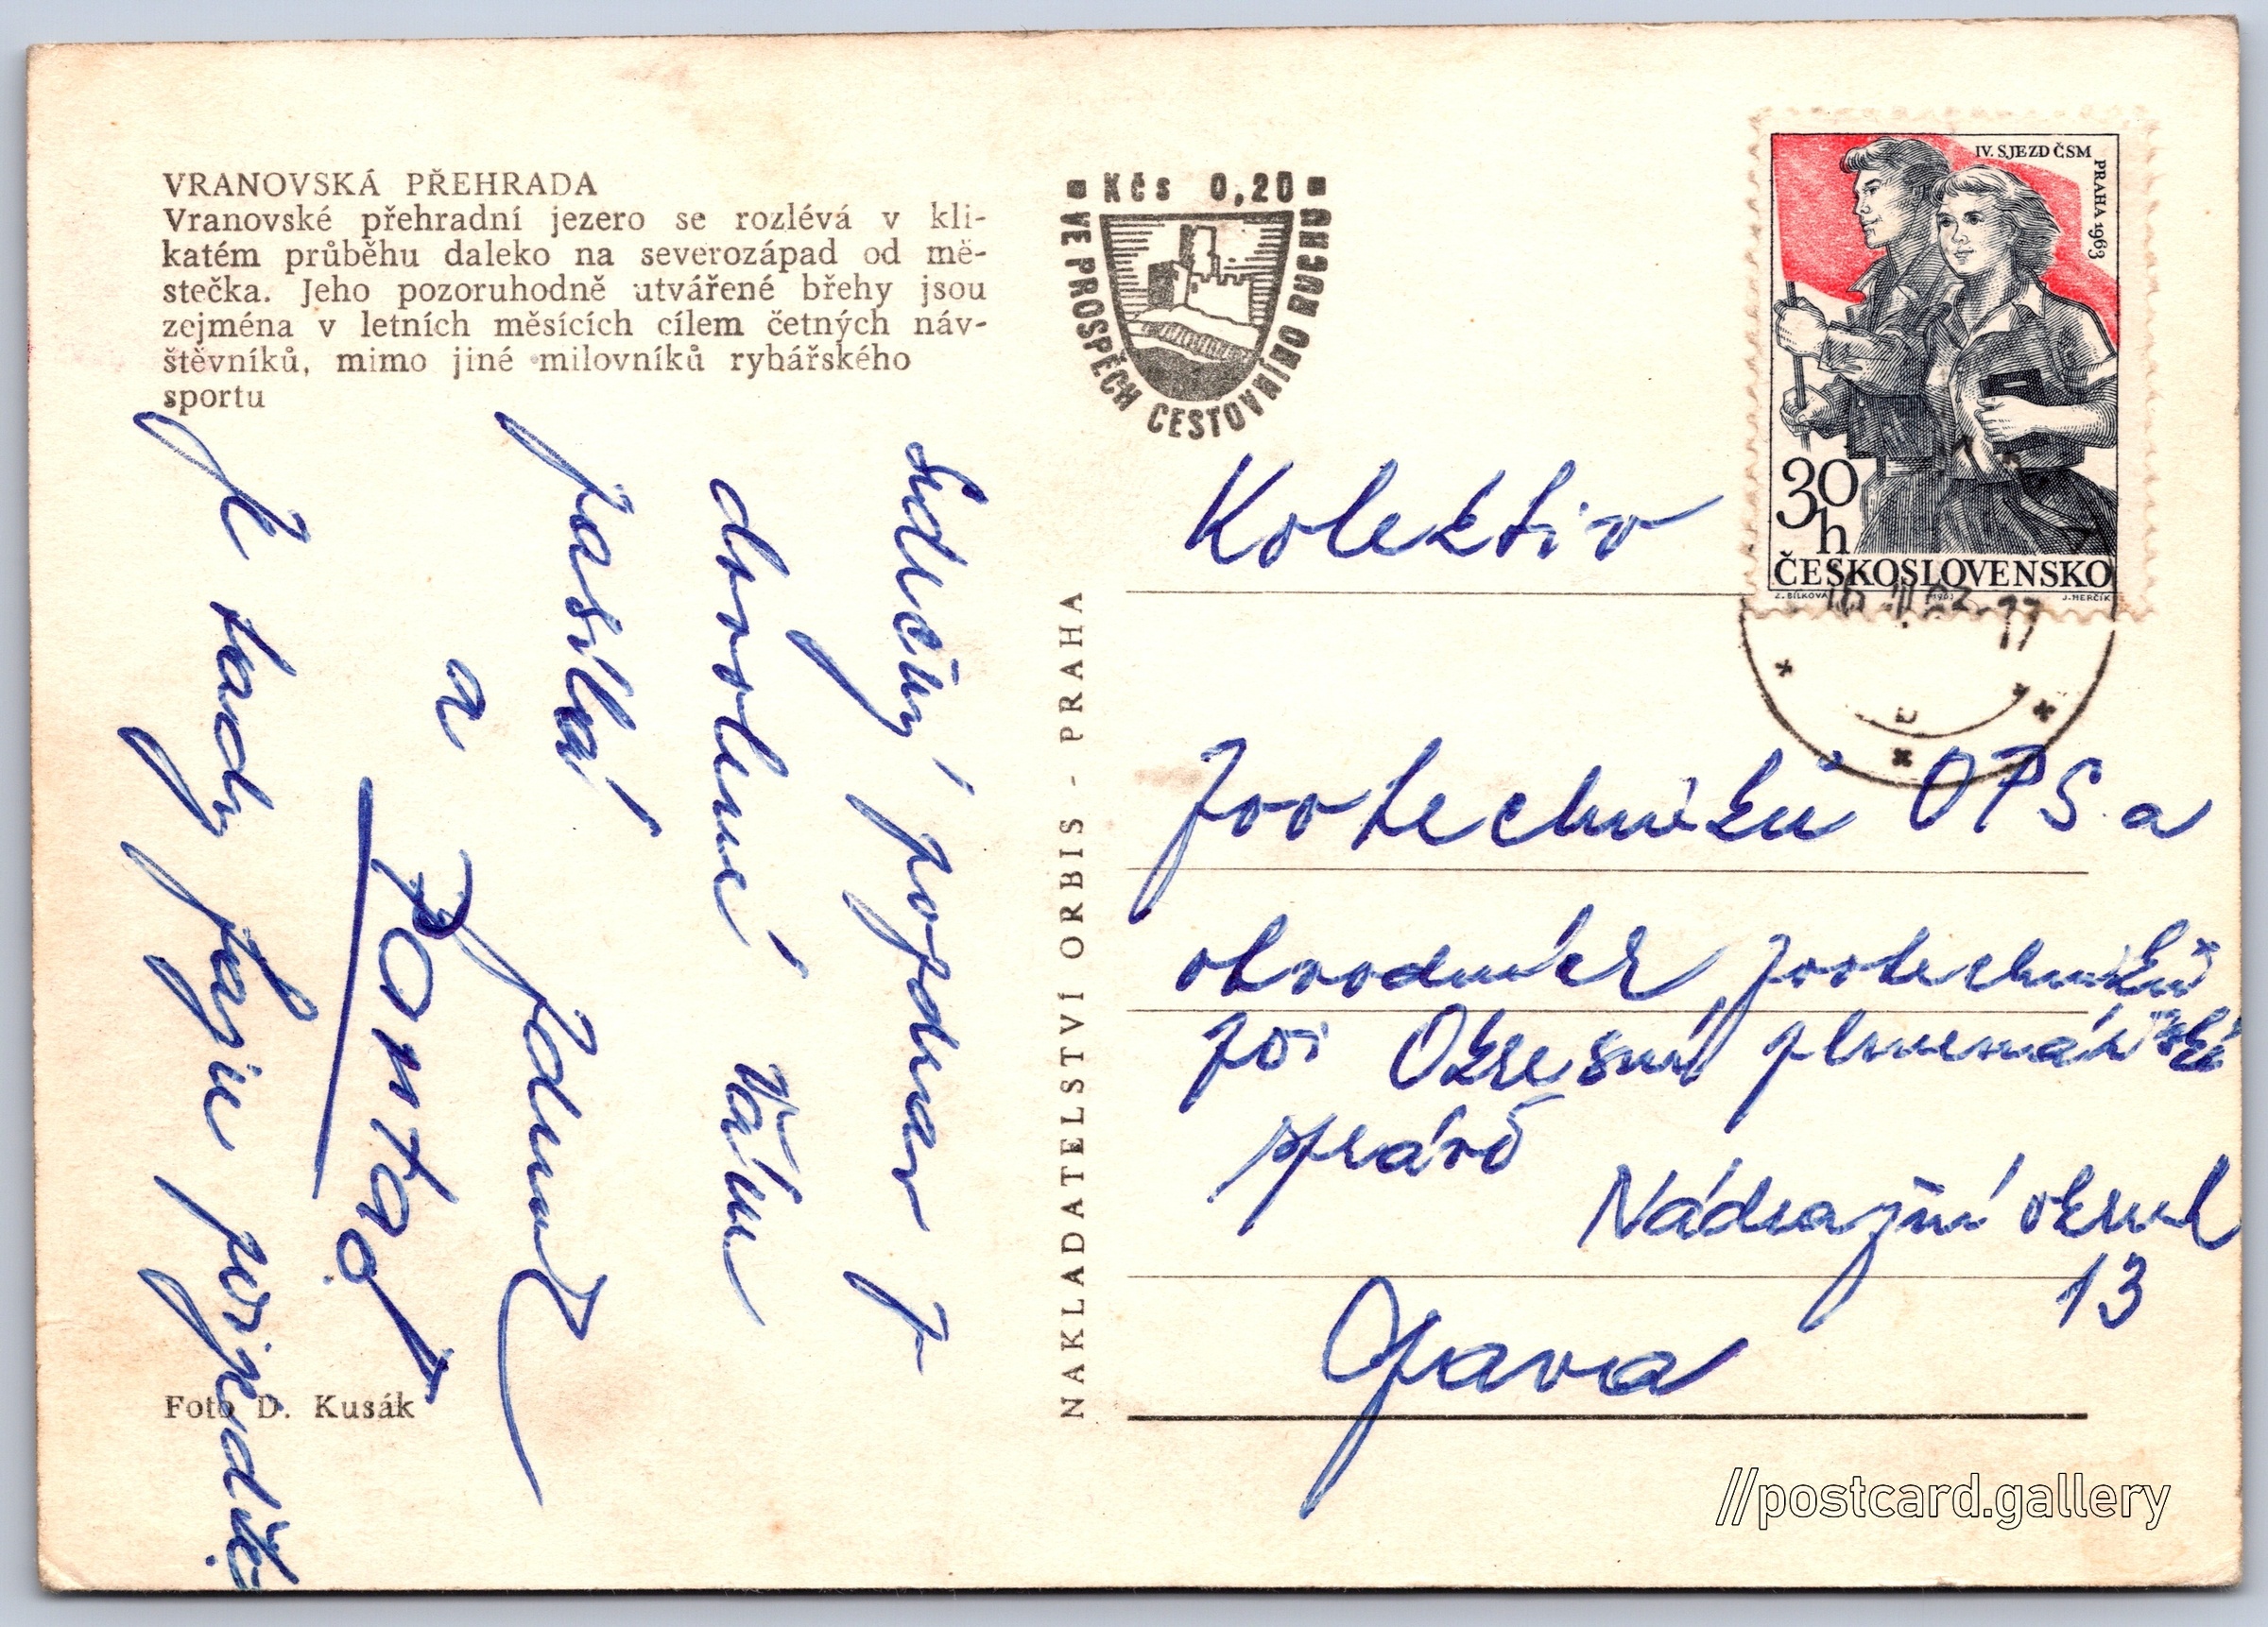 VRANOVSKÁ PŘEHRADA
Vranovské přehradní jezero se rozlévá v kli-
katém průběhu daleko na severozápad od mě-
stečka. Jeho pozoruhodně utvářené břehy jsou
zejména v letních měsících cílem četných náv-
štěvníků, mimo jiné milovníků rybářského
sportu
Srdečný pozdrav z
dovolené Vám
posílá
Zdeněk
a
Je tady
Foto D. Kusák
NAKLADATELSTVÍ ORBIS - PRAHA
Kčs 0,20
VE PROSPĚCH CESTOVNÍHO RUCHU
IV. SJEZD ČSM
PRAHA 1963
30 h
ČESKOSLOVENSKO
Z. BÍLKOVÁ 1963 J. HERČÍK
Kolektiv
Zootechniků OPS a
obvodních zootechniků
při Okresní plemenářské
správě
Nádražní okruh
13
Opava
//postcard.gallery